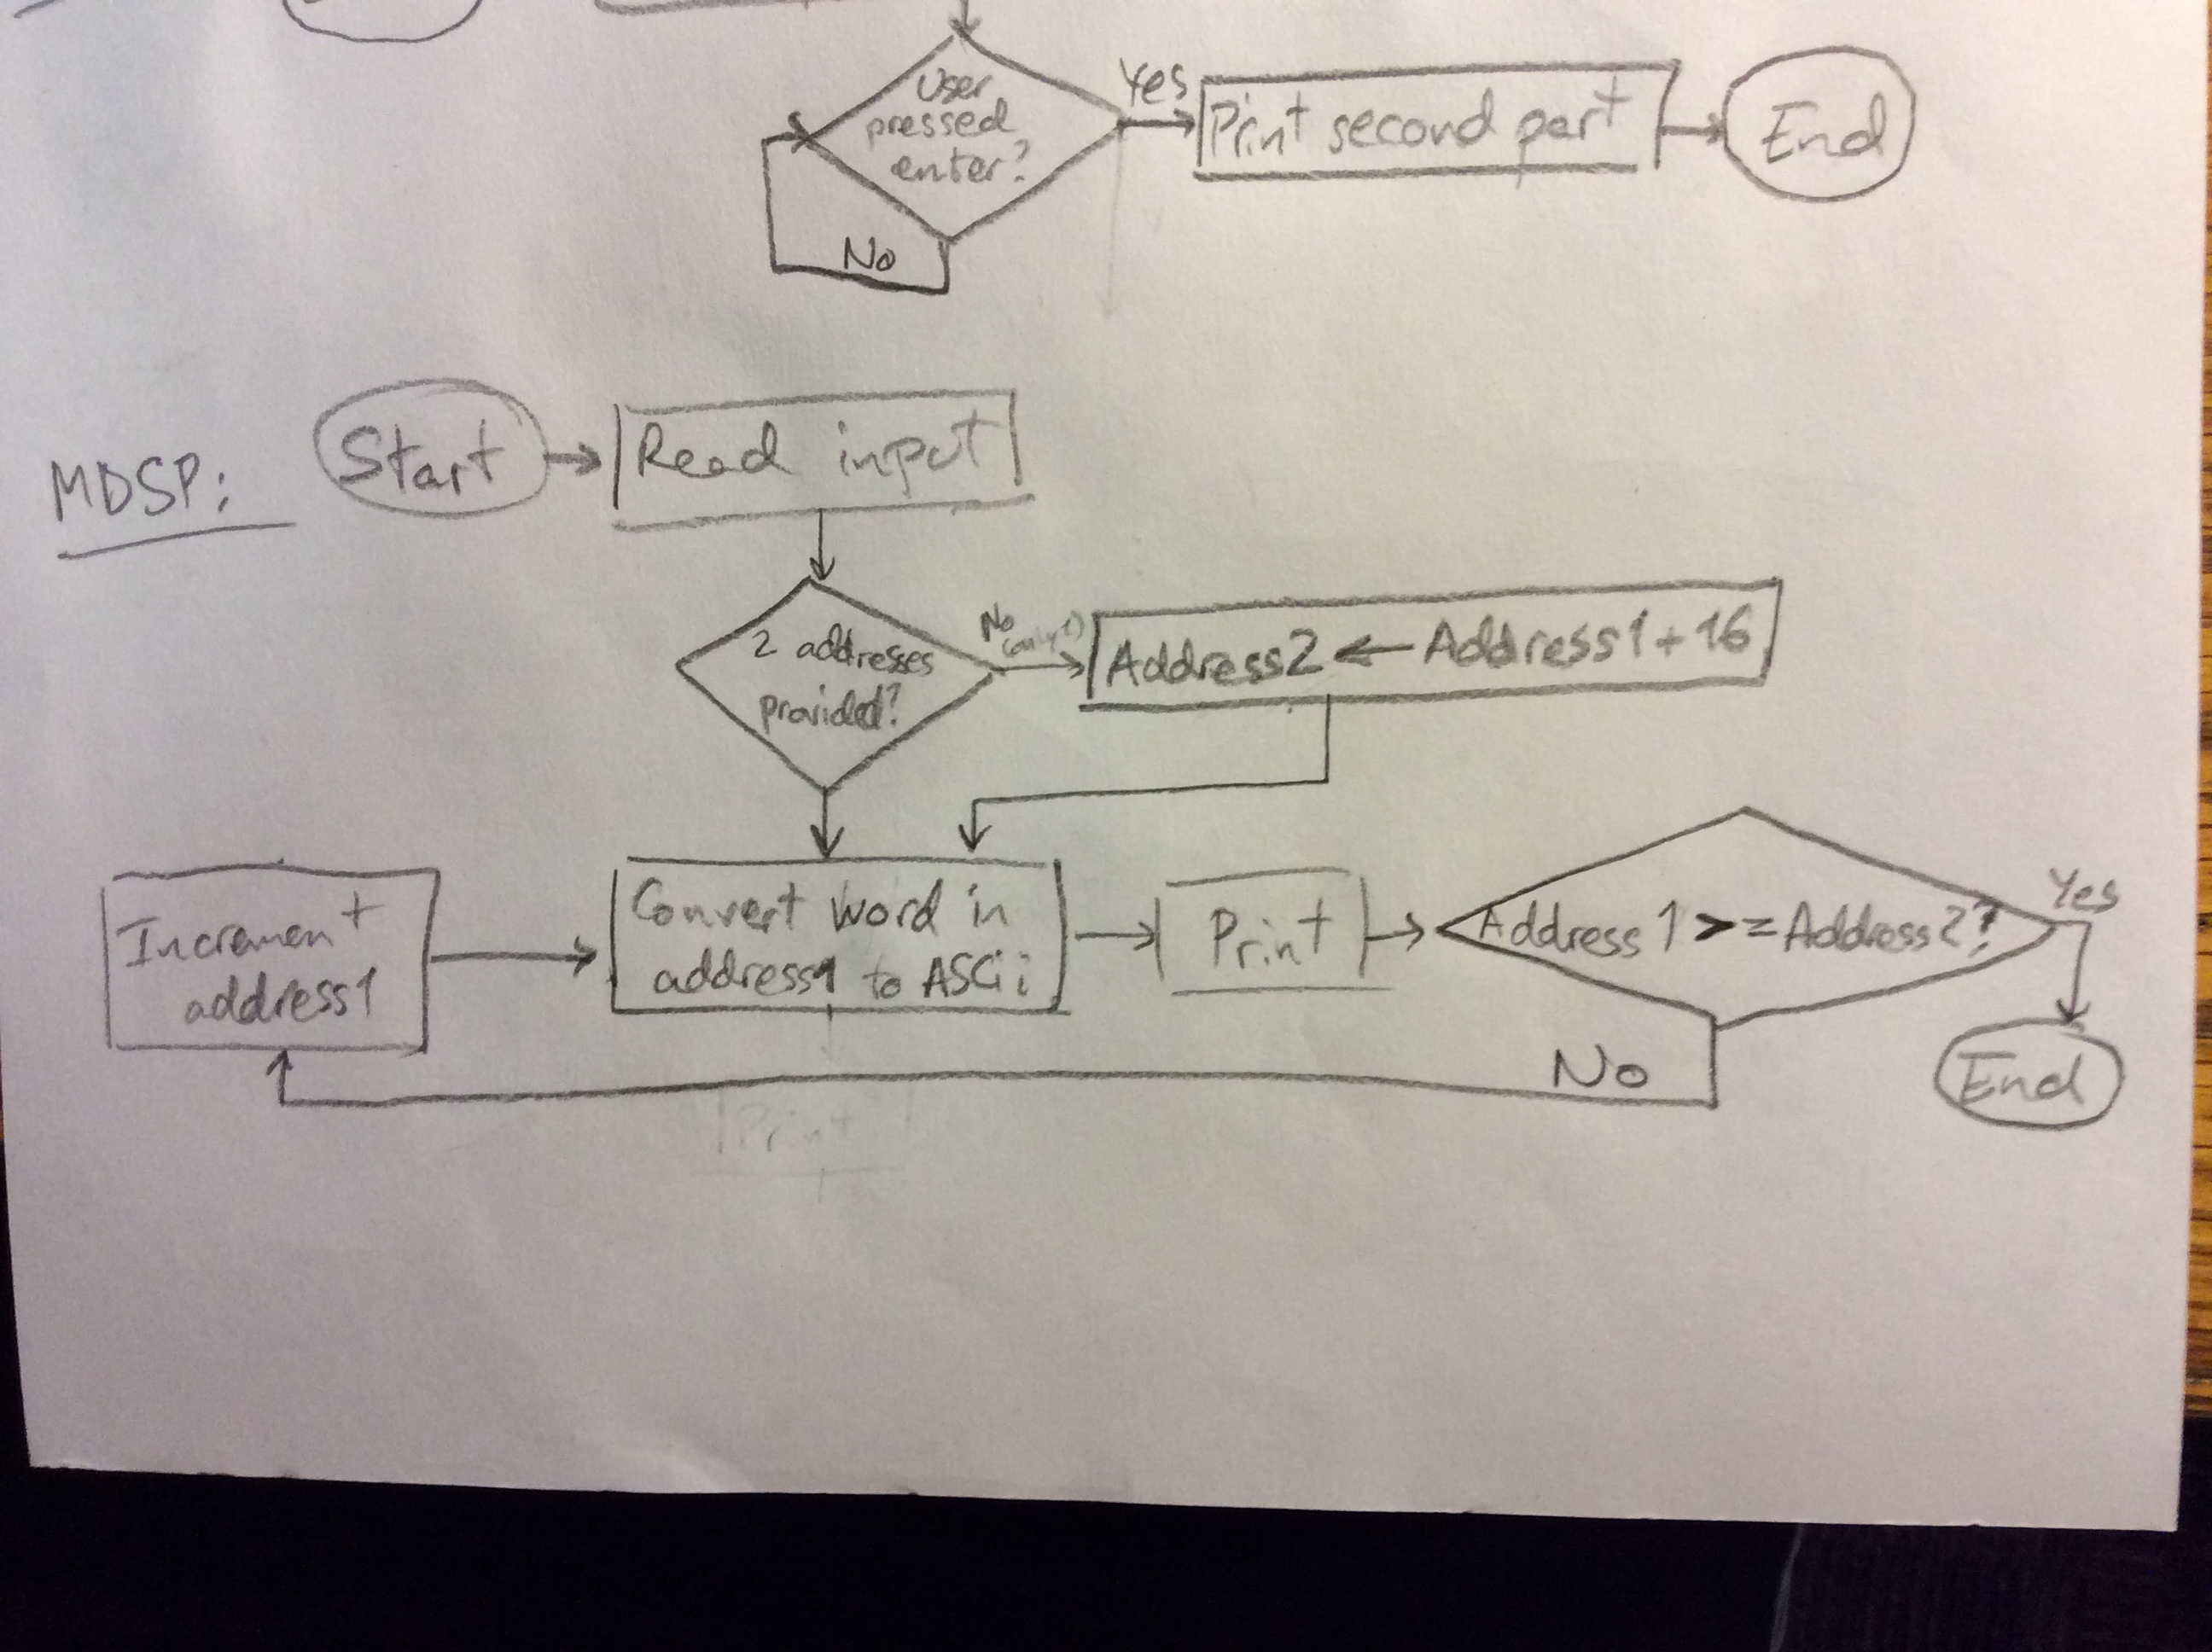 User
pressed
enter?
Yes
Print second part
End
No
MDSP:
Start
Read input
2 addresses
provided?
No
(only 1)
Address2 ← Address1 + 16
Increment
address1
Convert word in
address1 to ASCii
Print
Address1 >= Address2?
Yes
No
End
Print